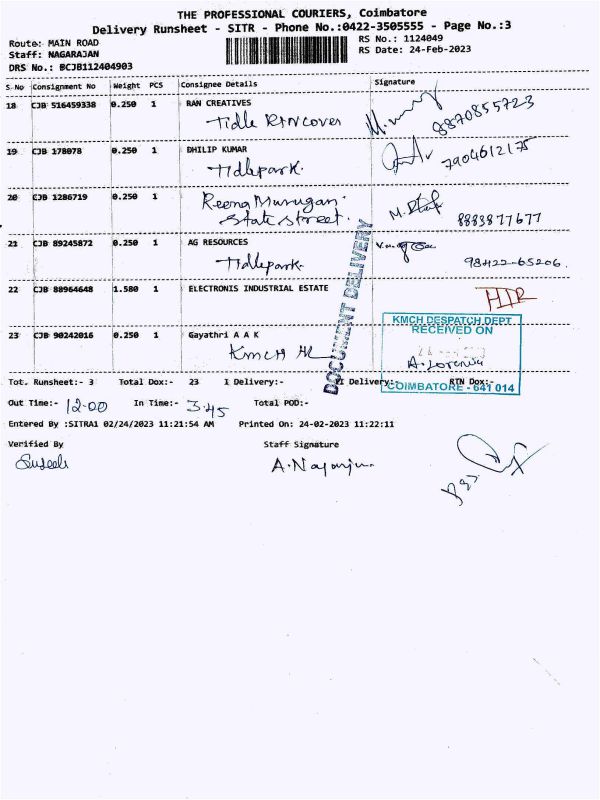 THE PROFESSIONAL COURIERS, Coimbatore
Delivery Runsheet - SITR - Phone No.:0422-3505555 - Page No.:3
Route: MAIN ROAD
RS No.: 1124049
Staff: NAGARAJAN
RS Date: 24-Feb-2023
DRS No.: BCJB112404903
S.No Consignment No Weight PCS Consignee Details Signature
18 CJB 516459338 0.250 1 RAN CREATIVES
Tidle RTN cover 8870855723
19 CJB 178078 0.250 1 DHILIP KUMAR
Tidlepark. 7904612175
20 CJB 1286719 0.250 1 Reena Murugan.
State Street. 8883877677
21 CJB 89245872 0.250 1 AG RESOURCES
Tidlepark 98422-65206.
22 CJB 88964648 1.580 1 ELECTRONIS INDUSTRIAL ESTATE
DOCUMENT DELIVERY
23 CJB 90242016 0.250 1 Gayathri A A K
KMCH
KMCH DESPATCH DEPT
RECEIVED ON
COIMBATORE - 641 014
Tot. Runsheet:- 3 Total Dox:- 23 I Delivery:- II Delivery:- RTN Dox:-
Out Time:- 12-00 In Time:- 3.45 Total POD:-
Entered By :SITRA1 02/24/2023 11:21:54 AM Printed On: 24-02-2023 11:22:11
Verified By Staff Signature